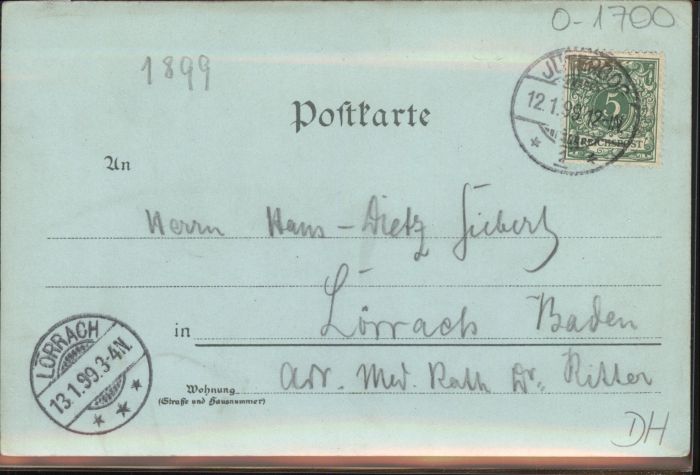 O-1700
1899
JÜTERBOG
12.1.99.12-1N.
5
REICHSPOST
Postkarte
An
Herrn Hans-Dietz Siebert
in Lörrach Baden
Wohnung
(Straße und Hausnummer)
Adr. Med. Rath Dr. Ritter
LÖRRACH
13.1.99.3-4N.
DH